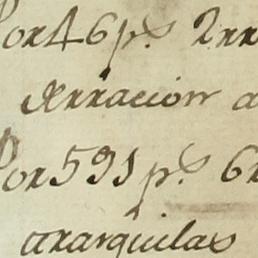 Por 46 p.s 2 rr
derracion a
Por 591 p.s 6 r
ararquilas